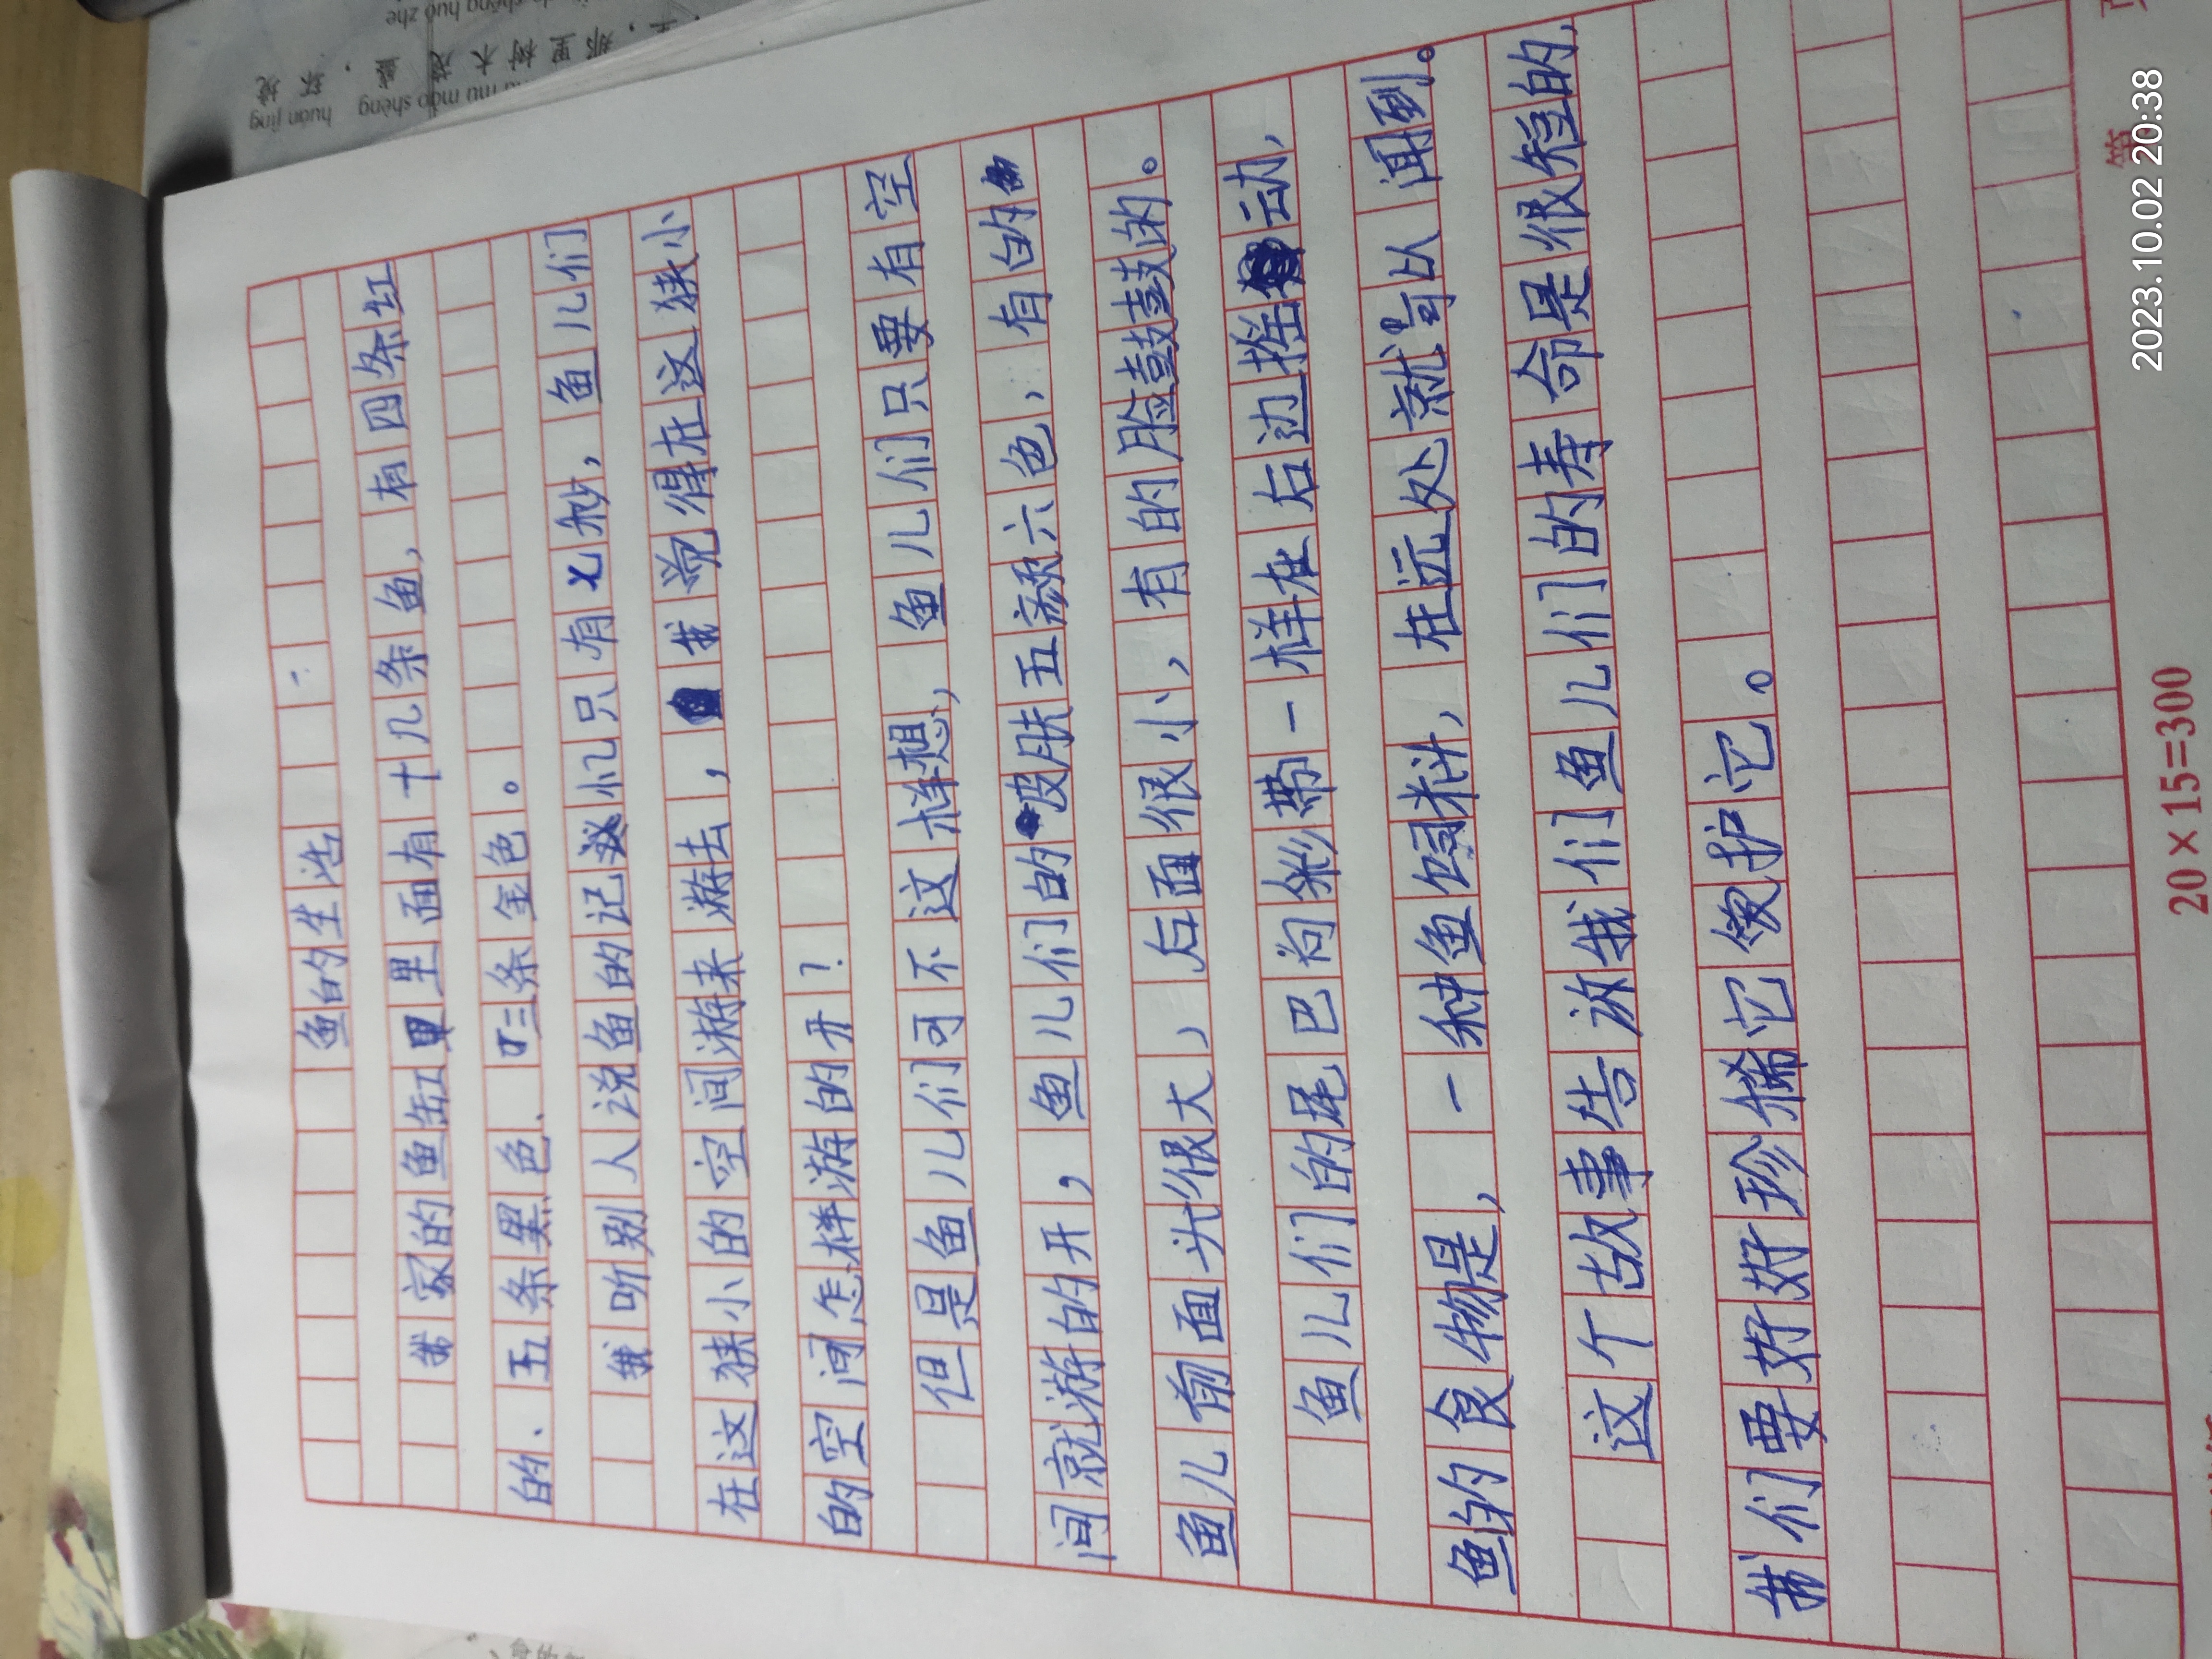 鱼的生活
我家的鱼缸里里面有十几条鱼，有四条红
的、五条黑色、三条金色。
我听别人说鱼的记忆只有七秒，鱼儿们
在这狭小的空间游来游去，我觉得在这狭小
的空间怎样游的开？
但是鱼儿们可不这样想，鱼儿们只要有空
间就游的开，鱼儿们的皮肤五颜六色，有的
鱼儿前面头很大，后面很小，有的脸鼓鼓的。
鱼儿们的尾巴向彩带一样在右边摇动，
鱼的食物是，一种鱼饲料，在远处就可以闻到。
这个故事告诉我们鱼儿们的寿命是很短的，
我们要好好珍惜它爱护它。
20×15=300
第
2023.10.02 20:38
huán jìng
mào shèng
shēng huó zhe